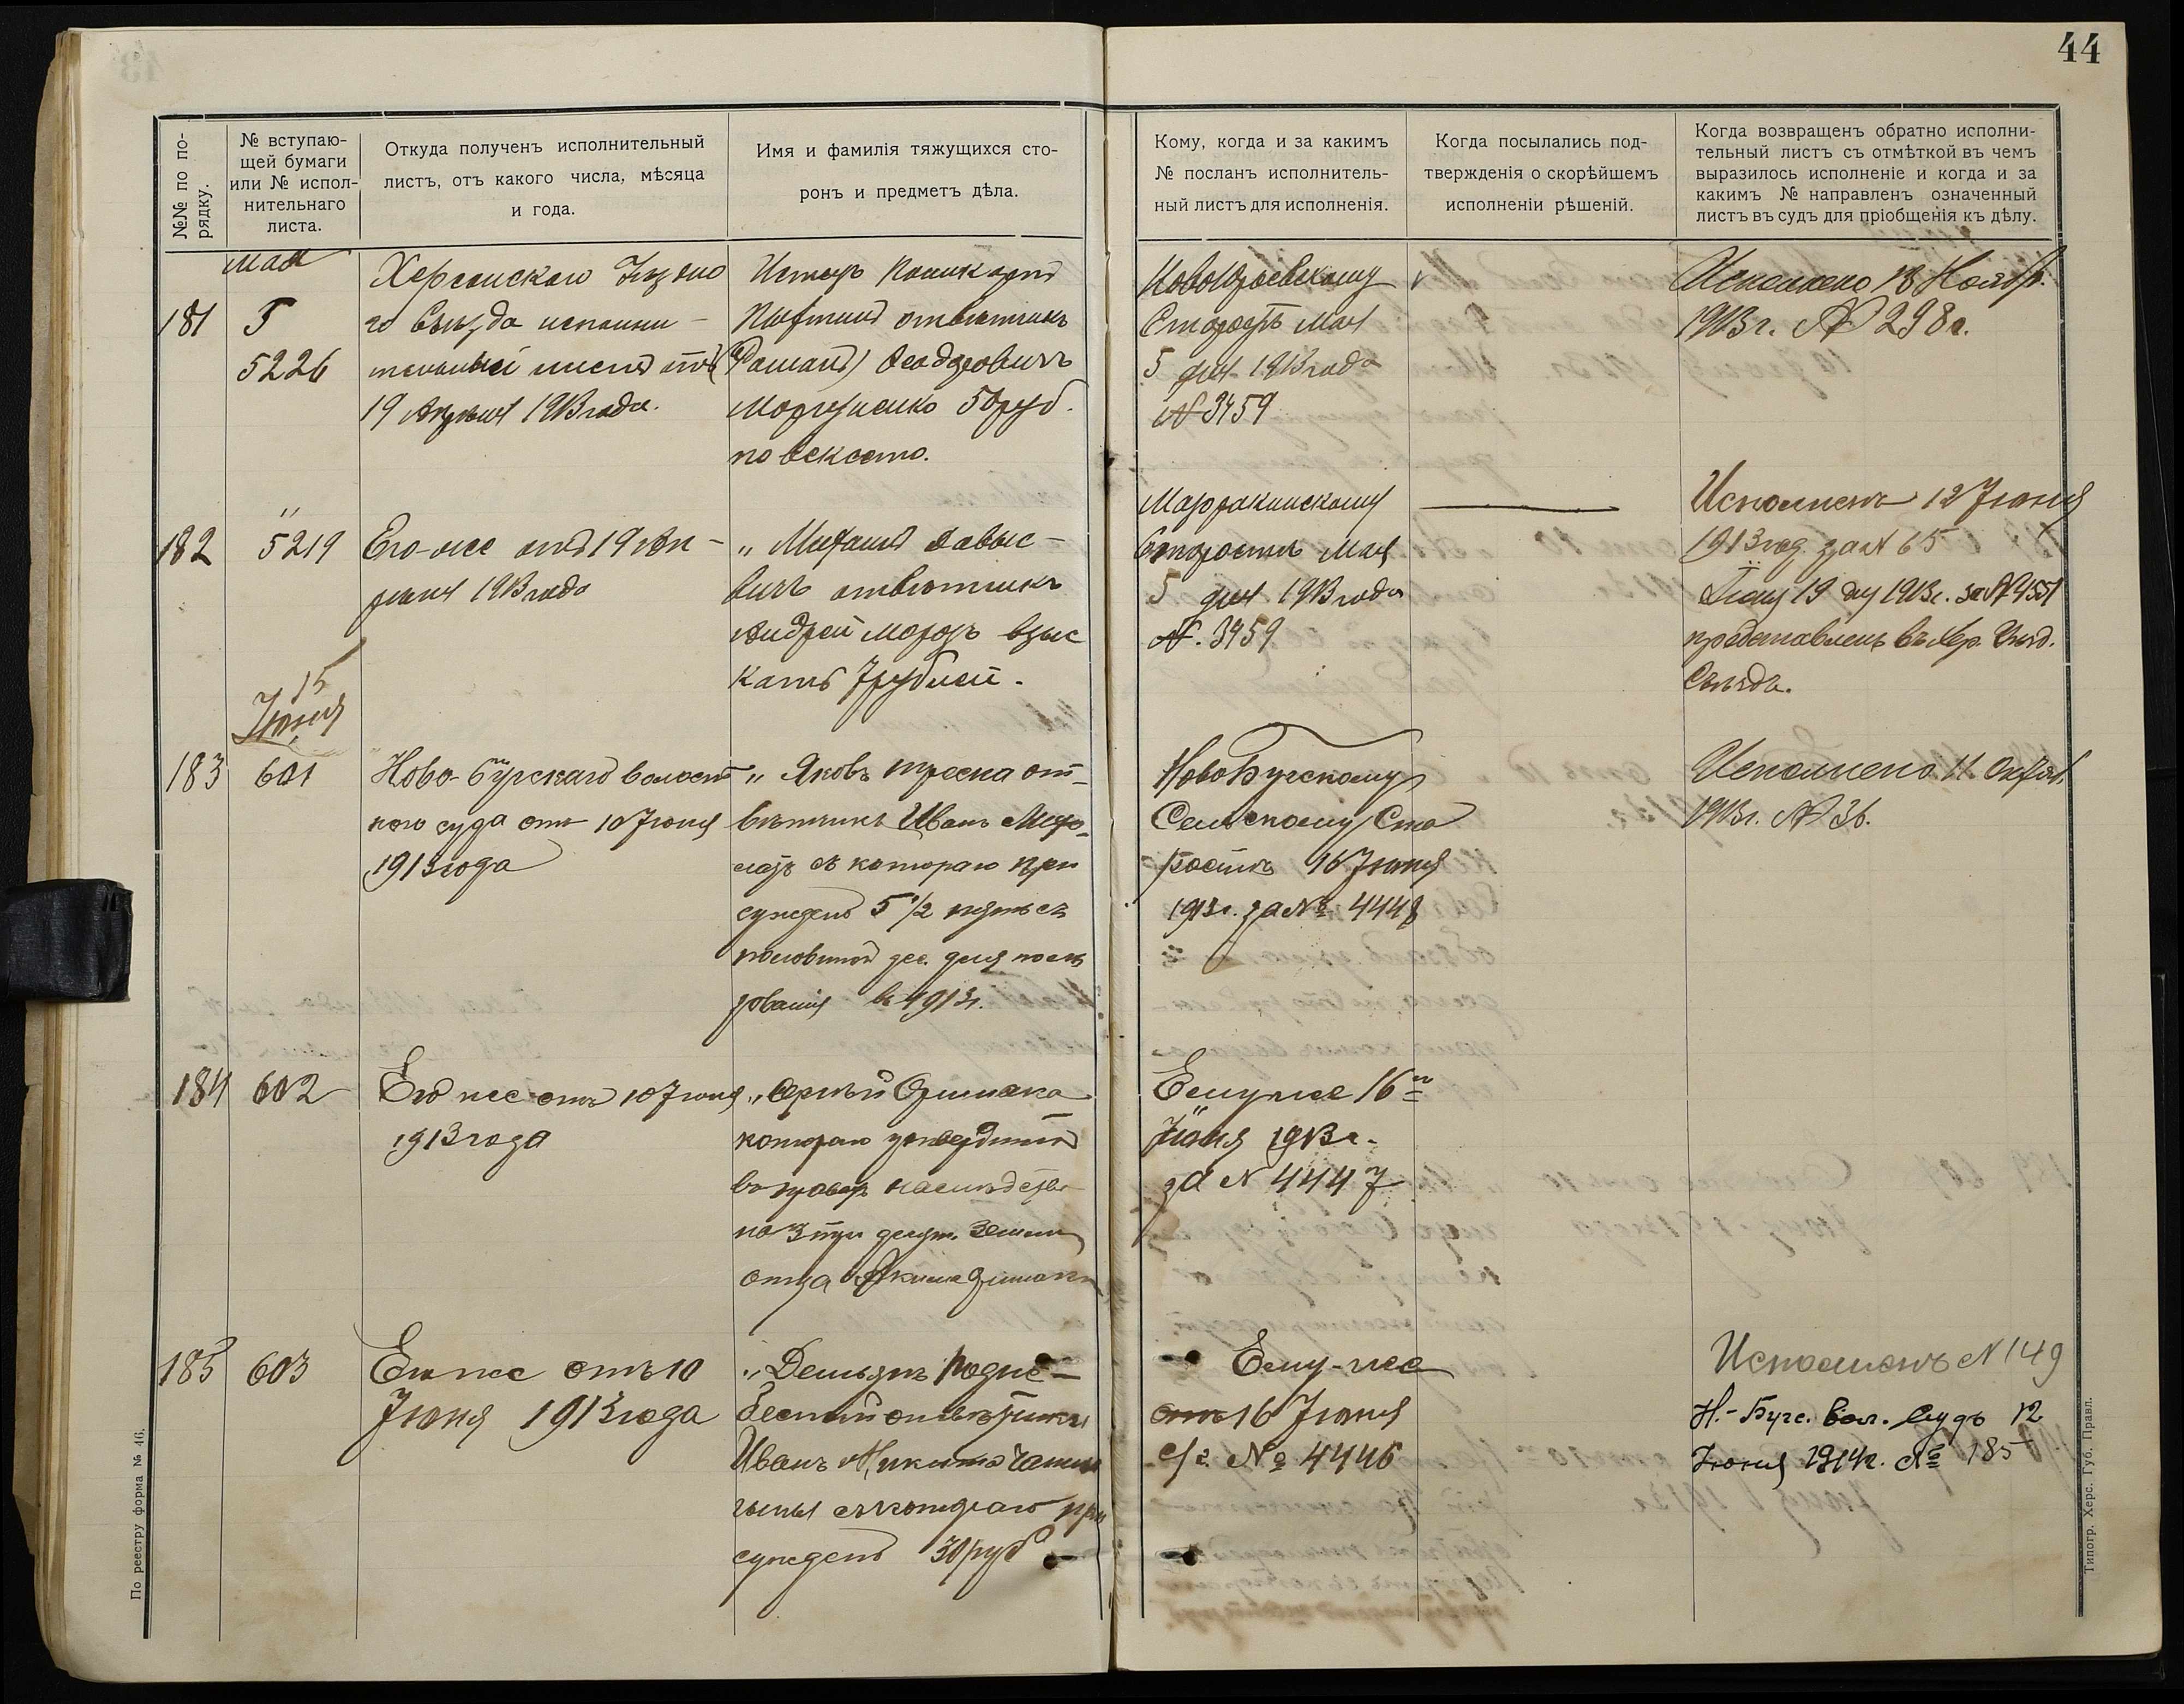 44
№№ по по-
рядку.
№ вступаю-
щей бумаги
или № испол-
нительнаго
листа.
Откуда полученъ исполнительный
листъ, отъ какого числа, мѣсяца
и года.
Имя и фамилія тяжущихся сто-
ронъ и предметъ дѣла.
Кому, когда и за какимъ
№ посланъ исполнитель-
ный листъ для исполненія.
Когда посылались под-
твержденія о скорѣйшемъ
исполненіи рѣшеній.
Когда возвращенъ обратно исполни-
тельный листъ съ отмѣткой въ чемъ
выразилось исполненіе и когда и за
какимъ № направленъ означенный
листъ въ судъ для пріобщенія къ дѣлу.
Мая
181
5
5226
Херсонскаго Уѣздна
го Съѣзда исполни-
тельный листъ отъ
19 Апрѣля 1913 года.
Истецъ Поликарпъ
отвѣтчикъ
(Романъ) Феодоровичъ
50 руб.
по векселю.
Старостѣ Мая
5 дня 1913 года
№ 3459
Исполнено 18 Ноябр.
1913 г. № 298 г.
182
"
5219
Его-же отъ 19 Ап-
рѣля 1913 года
„ отвѣтчикъ
Андрей Морозъ взыс
кать 7 рублей.
Старостѣ Мая
5 дня 1913 года
№. 3459
Исполненъ 12 Іюня
1913 год. за № 65
Іюня 19 дня 1913 г. за №
представленъ въ Хер. Уѣзд.
Съѣздъ.
15
Іюня
183
601
Ново-Бугскаго волост
ного суда отъ 10 Іюня
1913 года
„ Яковъ от-
вѣтчикъ Иванъ
съ котораго при
сужденъ 5 1/2 пять съ
половиной дес. для
въ 1913 г.
НовоБугскому
Сельскому Ста
ростѣ 16 Іюня
1913 г. за № 4448
Исполнено 11 Октяб.
1913 г. № 36.
184
602
Его же отъ 10 Іюня
1913 года
„ Сергѣй
котораго
наслѣдства
на 3 три десят. земли
отца
Ему же 16го
Іюня 1913 г.
за № 4447
185
603
Его же отъ 10
Іюня 1913 года
„ Демьянъ
отвѣтчикъ
Иванъ Никита
съ котораго при
сужденъ 30 руб
Ему-же
отъ 16 Іюня
с/г. № 4446
Исполненъ № 149
Н.-Бугс. Вол. Судъ 12
Іюня 1914 г. № 185
По реестру форма № 46.
Типогр. Херс. Губ. Правл.